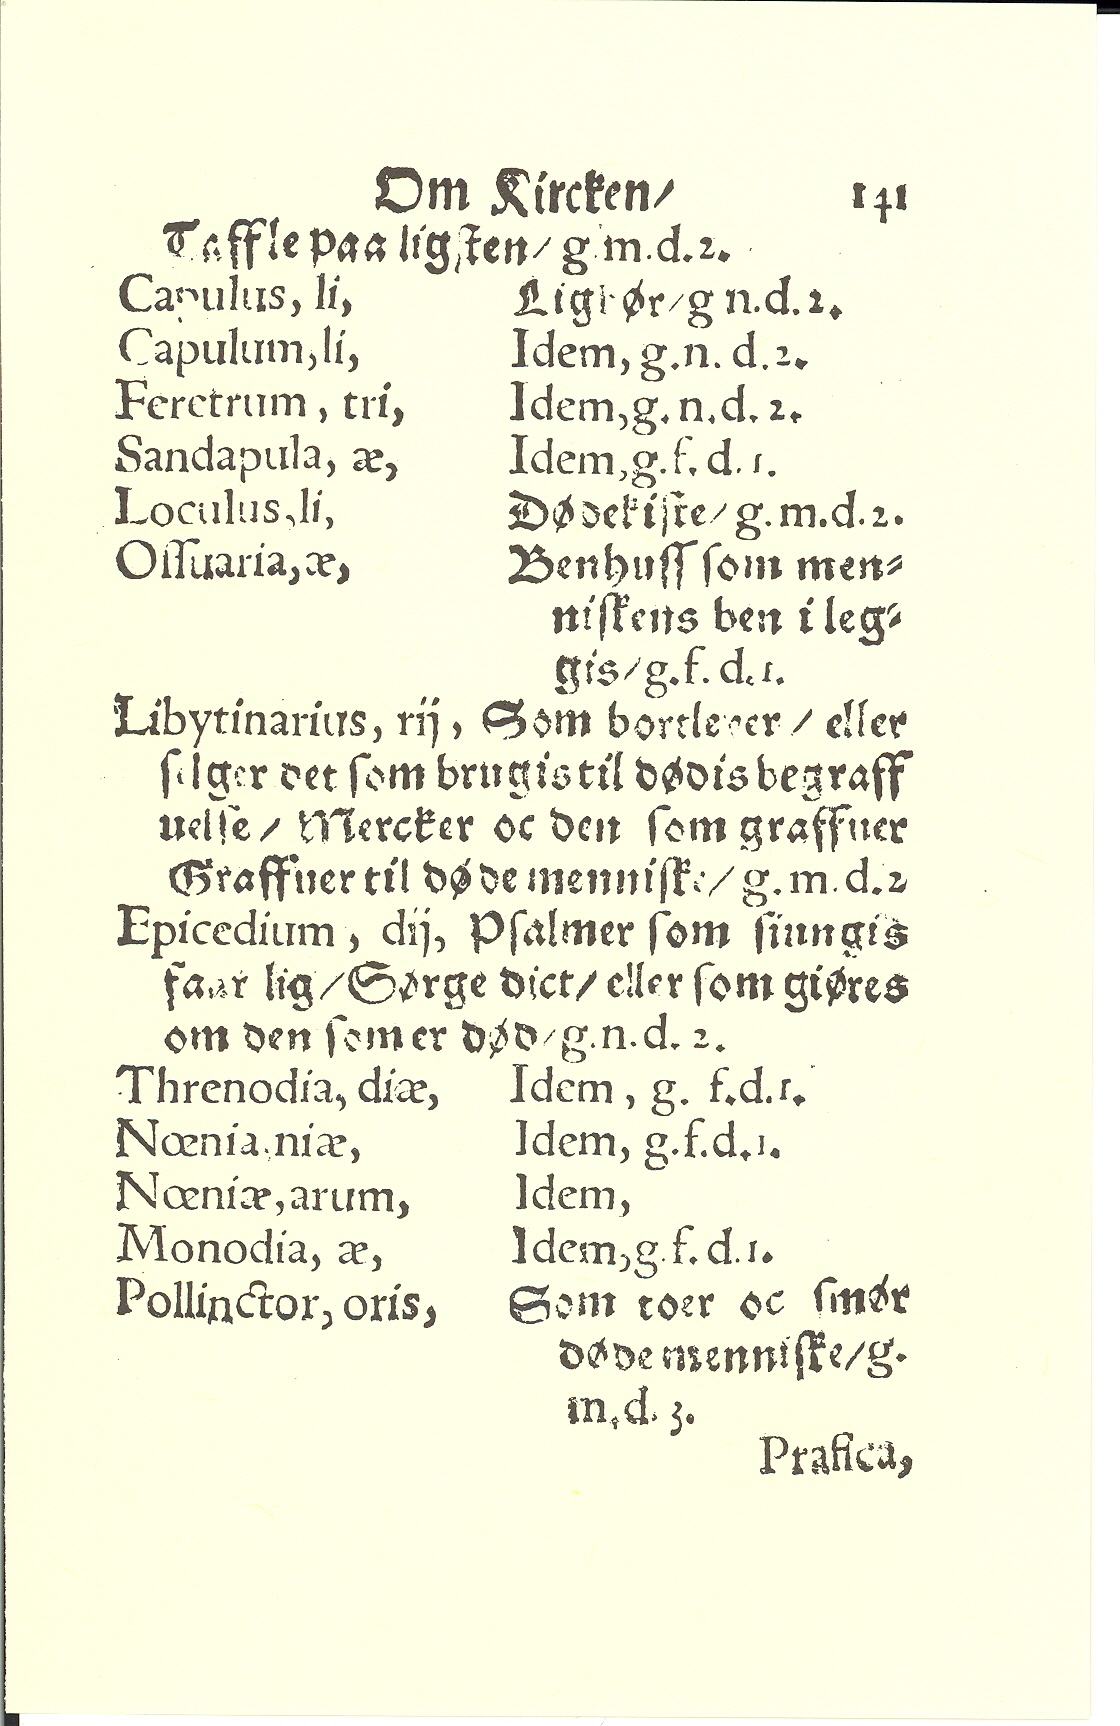 Om Kircken/ 141
Taffle paa ligsten/ g.m.d.2.
Capulus, li, Ligbør/g n.d.2.
Capulum,li, Idem, g.n. d.2.
Feretrum, tri, Idem,g. n.d. 2.
Sandapula, æ, Idem,g.f. d. 1.
Loculus,li, Dødekiſte/ g.m.d.2.
Oſſuaria,æ, Benhuſſ ſom men⸗
niſkens ben i leg⸗
gis/g.f. d.1.
Libytinarius, rij, Som bortlever / eller
ſelger det ſom brugis til dødis begraff
uelſe/ Mercker oc den ſom graffuer
Graffuer til døde menniſke/ g.m.d.2
Epicedium, dij, Pſalmer ſom ſiungis
faar lig/Sørge dict/ eller ſom giøres
om den ſom er død/g.n.d. 2.
Threnodia, diæ, Idem, g. f.d.1.
Nœnia,niæ, Idem, g.f.d.1.
Nœniæ,arum, Idem,
Monodia, æ, Idem,g.f. d.1.
Pollinctor, oris, Som toer oc ſmør
døde menniſke/g.
m.d. 3.
Prafica,